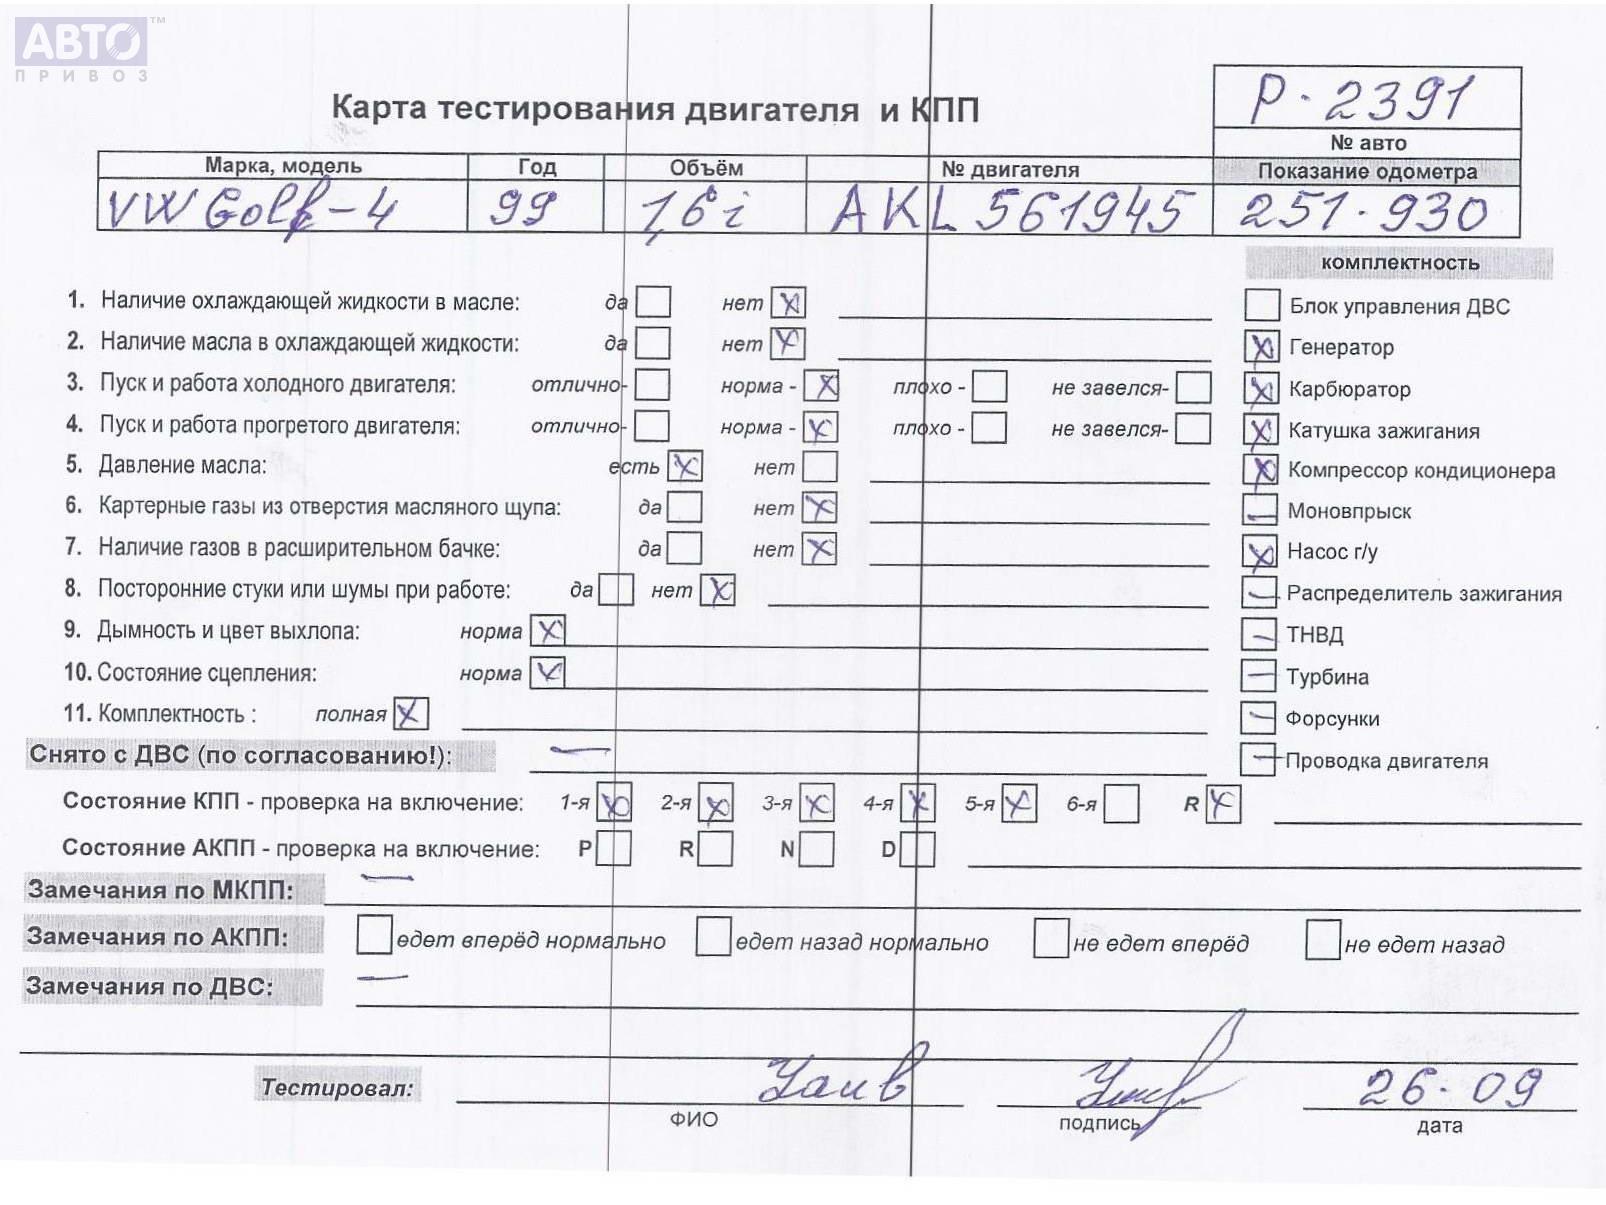 АВТО™
ПРИВОЗ
Карта тестирования двигателя и КПП
Р-2391
№ авто
Марка, модель Год Объём № двигателя Показание одометра
VW Golf-4 99 1,6i AKL 561945 251.930
комплектность
1. Наличие охлаждающей жидкости в масле: да нет x
Блок управления ДВС
2. Наличие масла в охлаждающей жидкости: да нет x
x Генератор
3. Пуск и работа холодного двигателя: отлично- норма - x плохо - не завелся-
x Карбюратор
4. Пуск и работа прогретого двигателя: отлично- норма - x плохо - не завелся-
x Катушка зажигания
5. Давление масла: есть x нет
x Компрессор кондиционера
6. Картерные газы из отверстия масляного щупа: да нет x
– Моновпрыск
7. Наличие газов в расширительном бачке: да нет x
x Насос г/у
8. Посторонние стуки или шумы при работе: да нет x
– Распределитель зажигания
9. Дымность и цвет выхлопа: норма x
– ТНВД
10. Состояние сцепления: норма x
– Турбина
11. Комплектность : полная x
– Форсунки
Снято с ДВС (по согласованию!): –
– Проводка двигателя
Состояние КПП - проверка на включение: 1-я x 2-я x 3-я x 4-я x 5-я x 6-я R x
Состояние АКПП - проверка на включение: P R N D
Замечания по МКПП: –
Замечания по АКПП: едет вперёд нормально едет назад нормально не едет вперёд не едет назад
Замечания по ДВС: –
Тестировал: 26.09
ФИО подпись дата